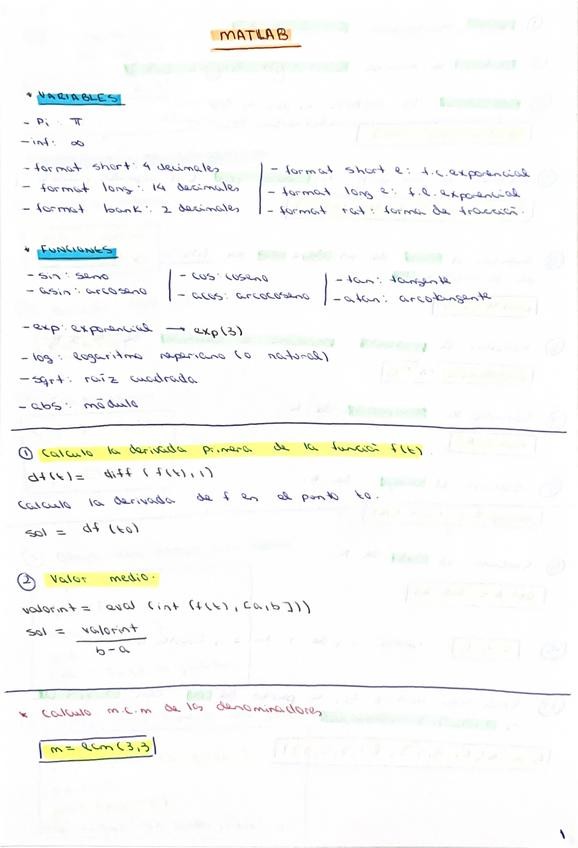 MATLAB
* VARIABLES
- Pi: π
- inf: ∞
- format short: 4 decimales
- format long: 14 decimales
- format bank: 2 decimales
- format short e: f.c. exponencial
- format long e: f.l. exponencial
- format rat: forma de fracción.
* FUNCIONES
- sin: seno
- asin: arcoseno
- cos: coseno
- acos: arcocoseno
- tan: tangente
- atan: arcotangente
- exp: exponencial → exp(3)
- log: logaritmo neperiano (o natural)
- sqrt: raíz cuadrada
- abs: módulo
① Calculo la derivada primera de la función f(t).
df(t) = diff (f(t), 1)
Calculo la derivada de f en el punto to.
sol = df (to)
② Valor medio.
valorint = eval (int (f(t), [a,b]))
sol = valorint
b-a
* Calculo m.c.m de los denominadores
m = lcm(3,3
1